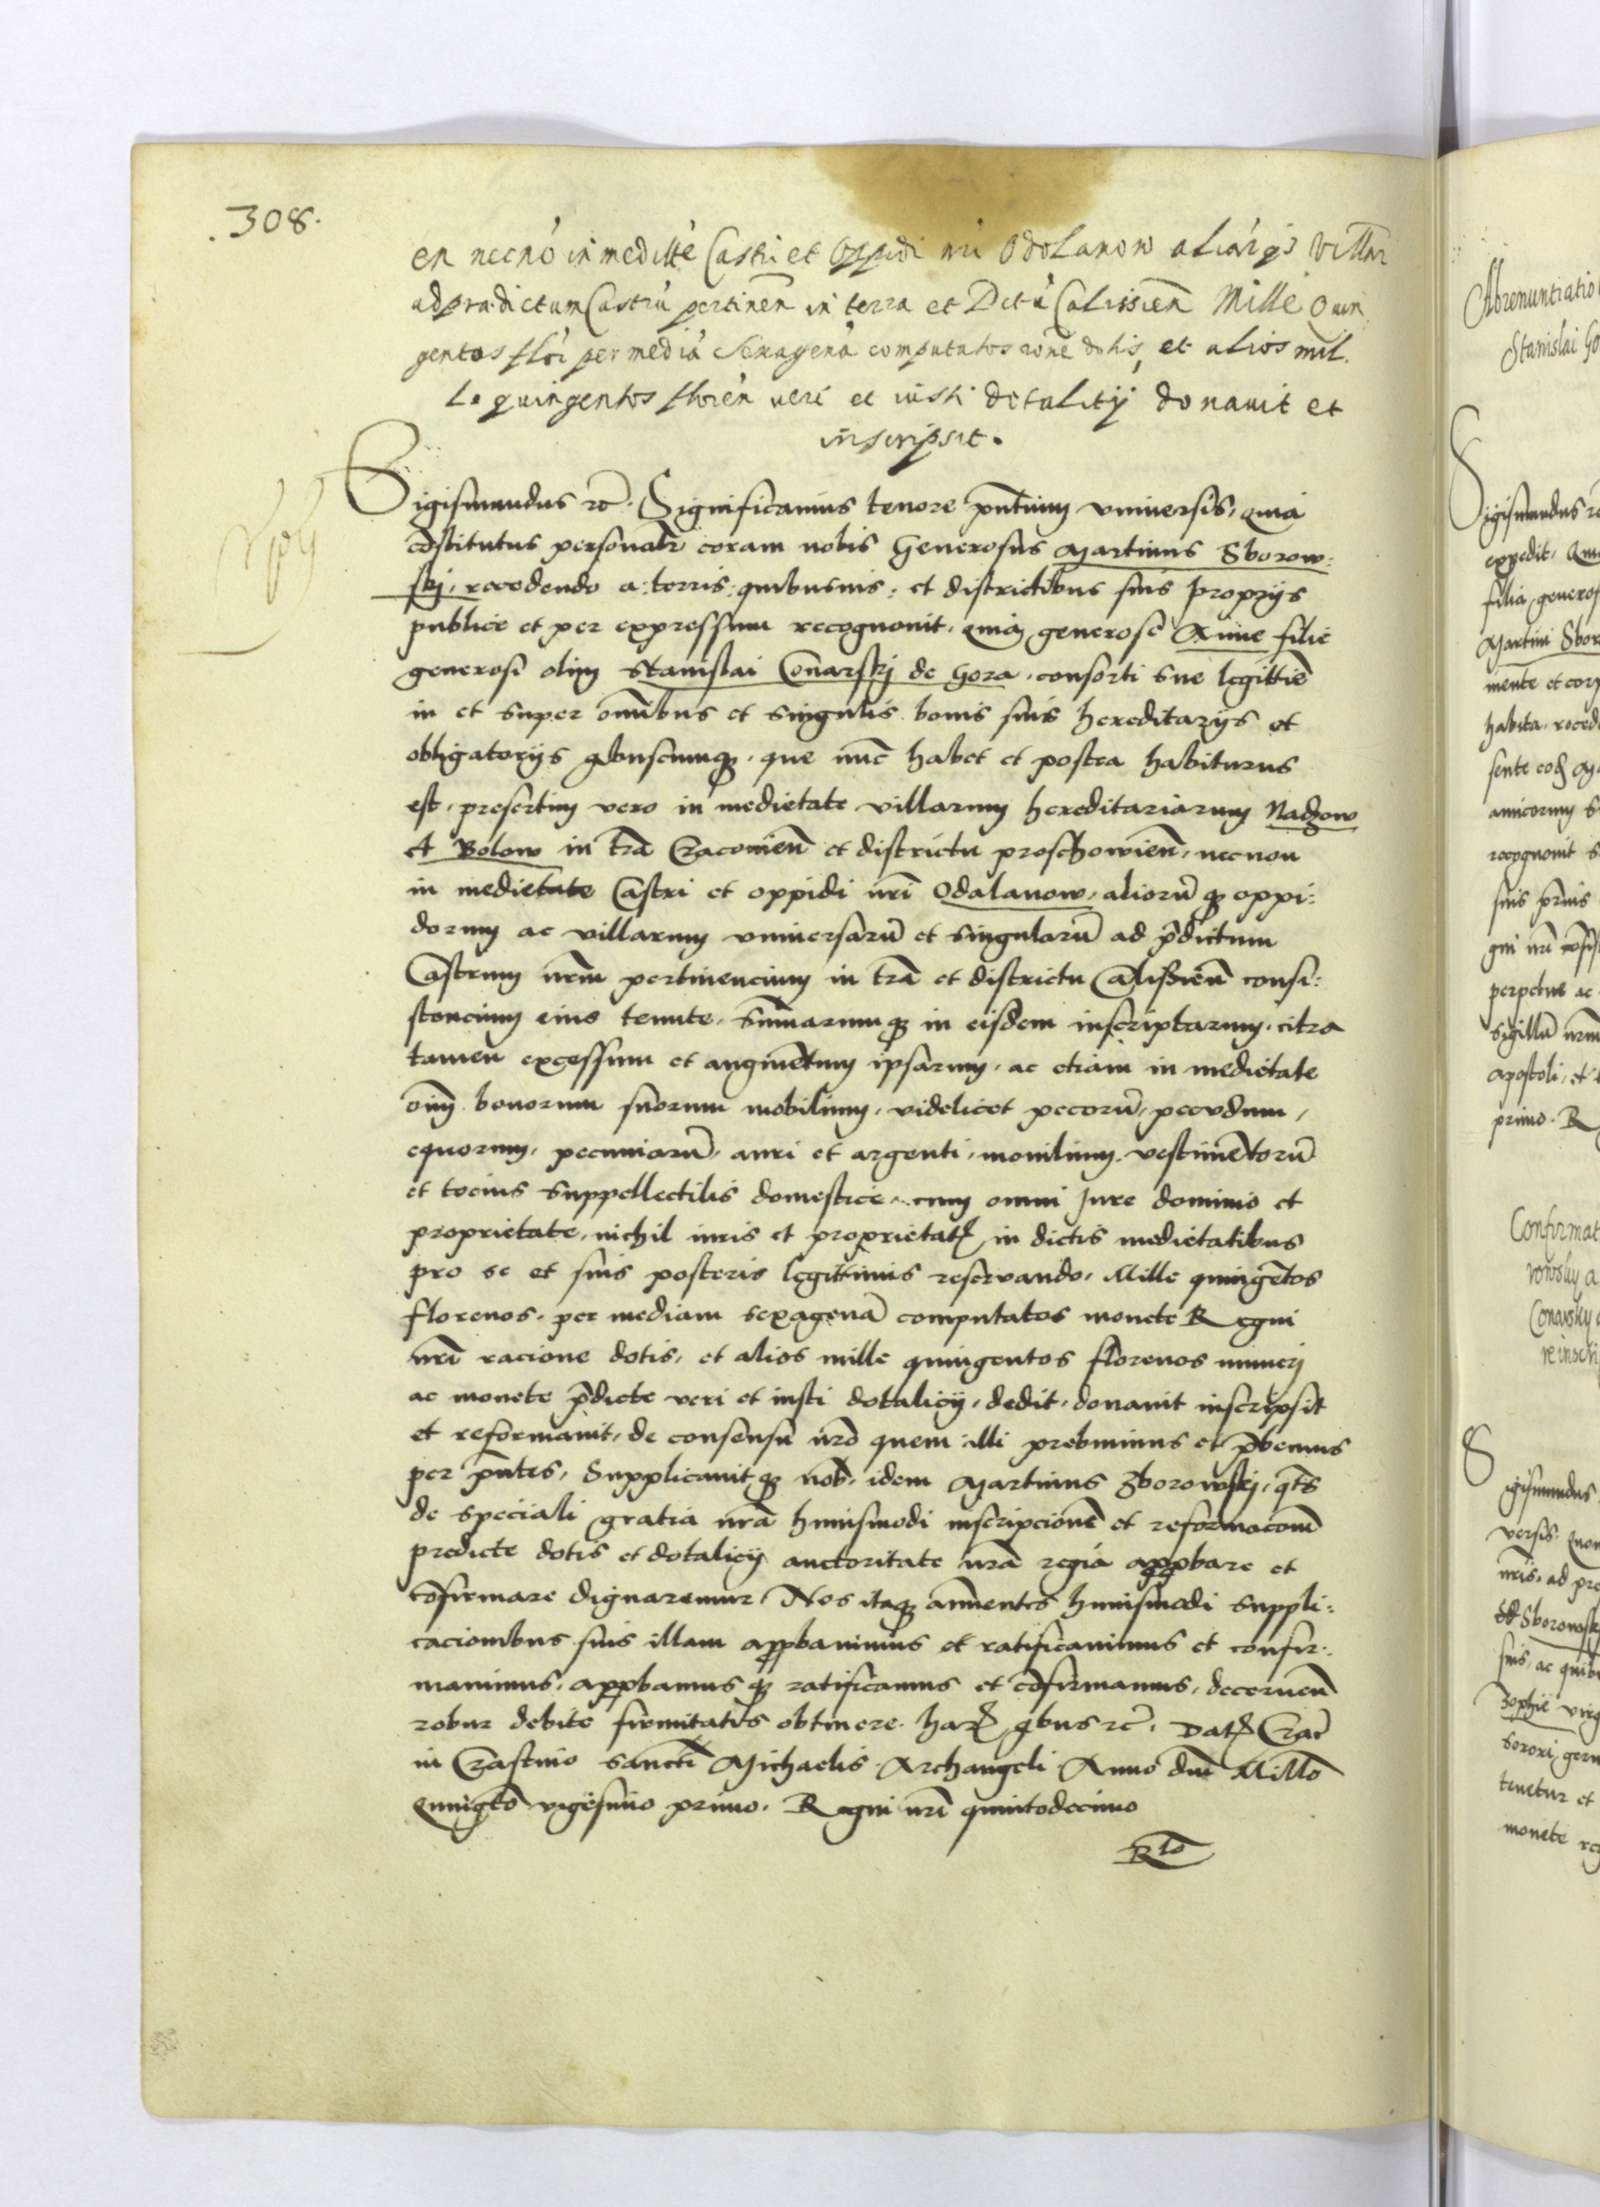 .308.
en necnõ in medittẽ Castri et Oppidi nri Odolanow aliarqs Villar
ad prædictum Castrũ pertinen̄ in terra et Dctũ Calissien̄ Mille Quin
gentos flor per mediã Sexagenã computatos rone dotis, et alios mil.
le quingentos floren veri et iusti dotalitij donavit et
inscripsit.
Sigismundus rc̄. Significamus tenore pn̄tium vniversis, quia
cõstitutus personalr̄ coram nobis Generosus Martinus Sborow:
skj, recedendo a terris quibusuis, et districtibus suis proprijs
publice et per expressum recognouit, quia generose Anne filie
generosi olim Stanislai Conarskj de Gora, consorti sue legittiē
in et super omībus et singulis bonis suis hereditarijs et
obligatorijs qbuscumqȝ, que nūc habet et postea habiturus
est, presertim vero in medietate villarum hereditariarum Nadzow
et Bolow in trā Cracouien̄ et districtu proschowien̄, necnon
in medietate Castri et oppidi nr̄i Odalanow, aliorū qȝ oppi:
dorum ac villarum vniversarū et singularū ad p̄dictum
Castrum nr̄m pertinencium in trā et districtu Calissien̄ consi:
stencium eius tenute, summarumqȝ in eisdem inscriptarum, citra
tamen excessum et augmētum ipsarum, ac etiam in medietate
oīm bonorum suorum mobilium, videlicet pecorū, pecudum,
equorum, pecuniarū, auri et argenti, monilium, vestimētorū
et tocius suppellectilis domestice, cum omni Jure dominio et
proprietate, nichil iuris et proprietatꝭ in dictis medietatibus
pro se et suis posteris legittimis reservando, Mille quingētos
florenos, per mediam sexagenā computatos monete Regni
nr̄i racione dotis, et alios mille quingentos florenos numerj
ac monete p̄dicte veri et iusti dotalicij, dedit, donauit inscripsit
et reformauit, de consensu nr̄o quem illi prebuimus et p̄bemus
per pn̄tes, Supplicauitqȝ nob̄, idem Martinus Zborowskj, qt̄s
de speciali gratia nr̄a huiusmodi inscripcionē et reformacōem
predicte dotis et dotalicij auctoritate nr̄a regia approbare et
cōfirmare dignaremur, Nos itaqȝ annuentes huiusmodi suppli:
cacionibus suis illam approbauimus et ratificauimus et confir:
mauimus, approbamusqȝ ratificamus et cōfirmamus, decernen̄
robur debite firmitatis obtinere. harꝭ qbus rc̄. Datꝭ Crac̄
in Crastino sancti Michaelis Archangeli Anno dn̄i Millō
quingētō vigesimo primo, Regni nr̄i quintodecimo
Rlō
Abrenuntiatio
Stanislai Go
Sigismundus rc
expedit, Qui
filia generos
Martini Sbor
mente et corp
habita, reced
sente eodꝭ Ma
amicorum s
recognouit
suis
gni nr̄i
perpetue ac
sigillū nr̄m
apostoli, et
primo. R
Confirmat
rowsky a
Conarsky
reinscri
Sigismundus
versis, Quo
nr̄is, ad pre
de Sborowsk
suis, ac quib
Zophie virg
sorori germ
tenetur et
monete reg